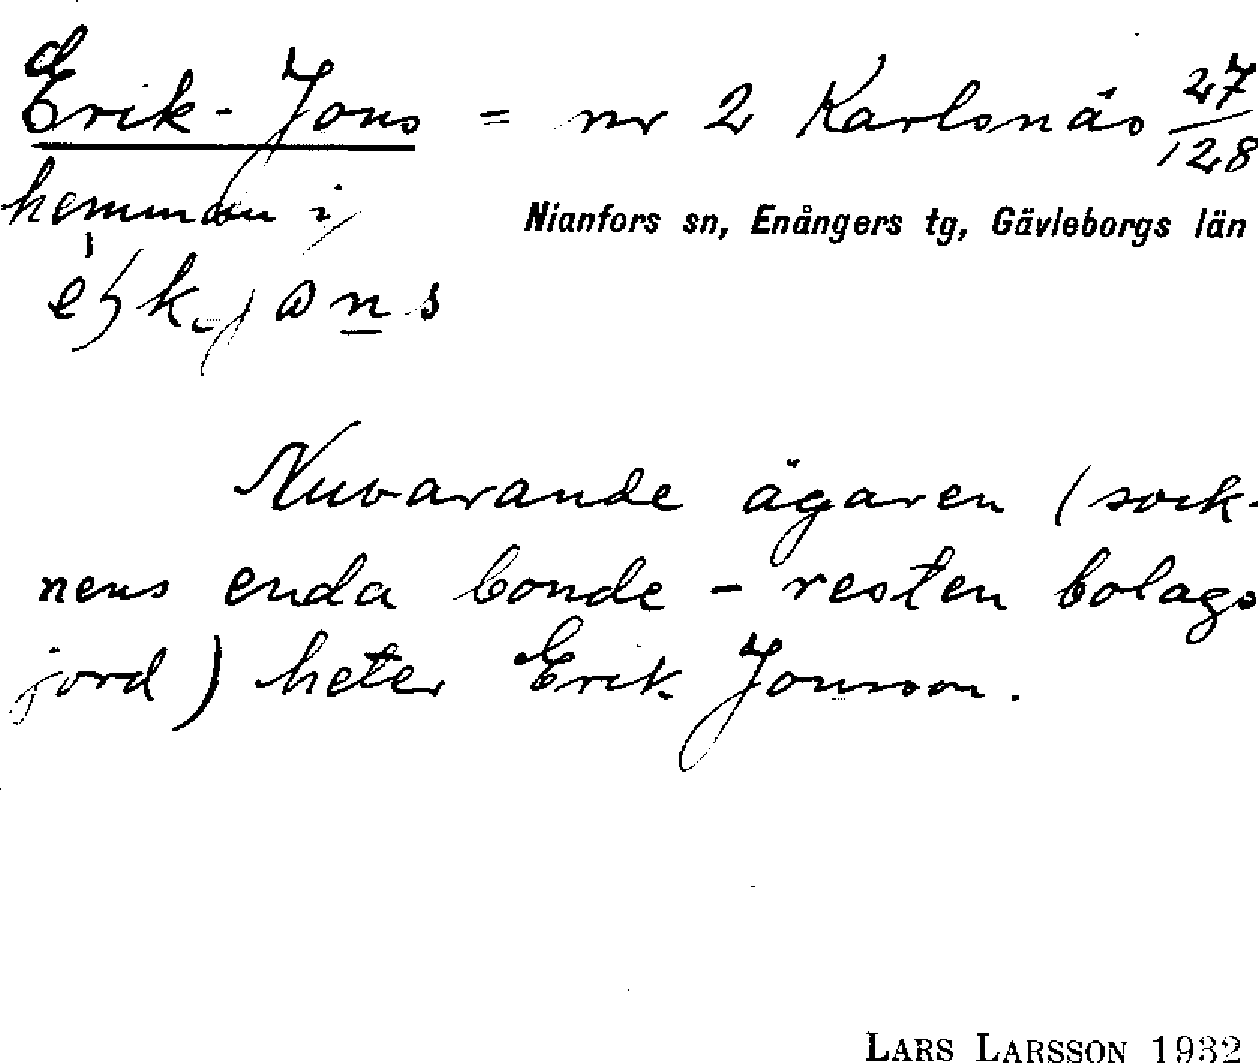 Erik-Jons = nr 2 Karlsnäs 27/128
hemman i
Nianfors sn, Enångers tg, Gävleborgs län
Nuvarande ägaren (sock-
nens enda bonde – resten bolags
jord) heter Erik Jonsson.
LARS LARSSON 1932